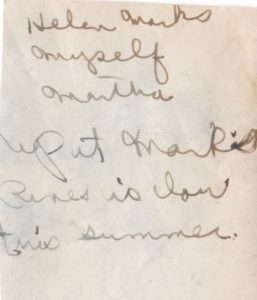 Helen Marks
Myself
Martha
Up at Mark's
Pines is low
this summer.